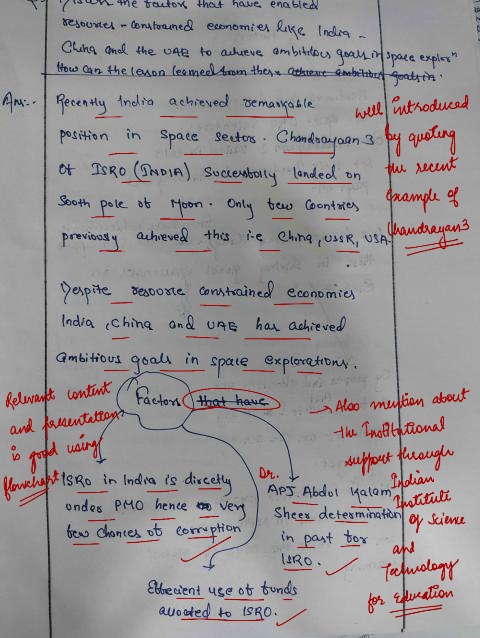 the factors that have enabled
resources-constrained economies like India -
China and the UAE to achieve ambitious goals in space explorⁿ
How can the lesson learned from there achieve ambitious goals in.
Ans:-. Recently India achieved remarkable
position in space sector. Chandrayaan 3
Of ISRO (INDIA) Successfully landed on
South pole of Moon. Only few Countries
previously achieved this i.e China, USSR, USA.
well introduced
by quoting
the recent
example of
Chandrayan 3
Despite resource constrained economies
India, China and UAE has achieved
ambitious goals in space explorations.
Factors that have
Relevant content
and presentation
is good using
flowchart
Also mention about
the Institutional
support through
Indian
Institute
of Science
and
Technology
for Education
ISRO in India is directly
under PMO hence very
few chances of corruption
Dr.
APJ. Abdul Kalam
Sheer determination
in past for
ISRO.
Effecient use of funds
allocated to ISRO.